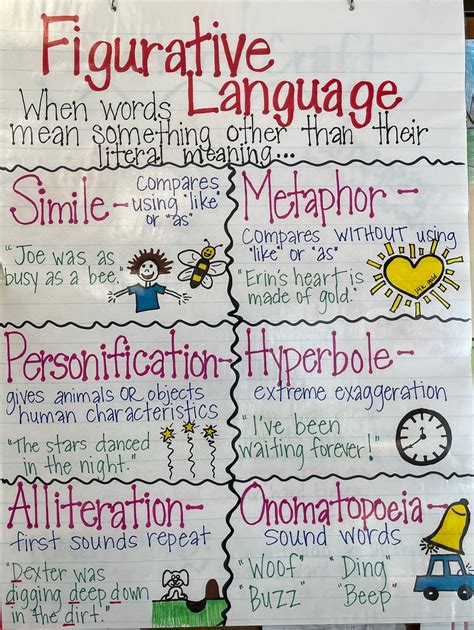 Figurative
Language
When words
mean something other than their
literal meaning...
Simile-
Compares
using "like"
or "as"
"Joe was as
busy as a bee."
Metaphor-
Compares WITHOUT using
"like" or "as"
"Erin's heart is
made of gold."
14K gold
Personification-
gives animals OR objects
human characteristics
"The stars danced
in the night."
Hyperbole-
extreme exaggeration
"I've been
waiting forever!"
Alliteration-
first sounds repeat
"Dexter was
digging deep down
in the dirt."
Onomatopoeia-
sound words
"Woof" "Ding"
"Buzz" "Beep"